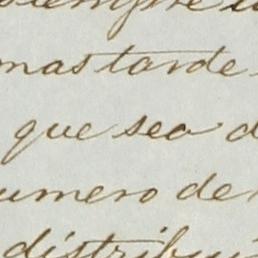 siempre
mas tarde
que sea d
umero de
distribu